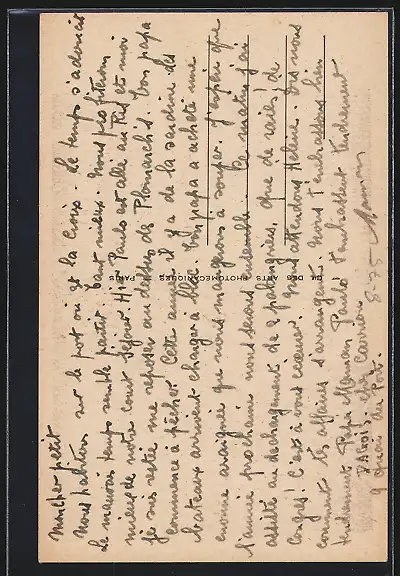 Mon cher petit
Nous partons sur le port où est la Croix. Le temps s'adoucit
le mauvais temps semble passer tant mieux. Nous profiterons
mieux de notre court séjour. Hier Paulo est allé au Ris et moi
je suis resté me reposer au dessus de Plomarch's. Ton papa
commence à pêcher. Cette année il y a de la sardine des
bateaux arrivent chargés à bloc. Ton papa a acheté une
énorme araignée que nous mangeons à souper. J'espère que
l'année prochaine nous serons ensemble. Ce matin j'ai
assisté au déchargement de 2 palangriers, que de raies de
congres! C'est à vous écœurer. Nous attendons Hélène. Dis nous
comment les affaires s'arrangent. Nous t'embrassons bien
tendrement Papa Maman Paulo t'embrassent tendrement
Maman
chez
9 quai du Port.
8-75
CIE DES ARTS PHOTOMECANIQUES PARIS